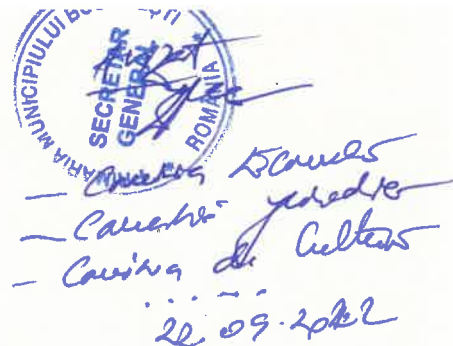 PRIMĂRIA MUNICIPIULUI BUCUREȘTI
SECRETAR
GENERAL
ROMÂNIA
— Comisia Economică
— Comisia Juridică
— Comisia de Cultură
. . . . .
20 09.2022